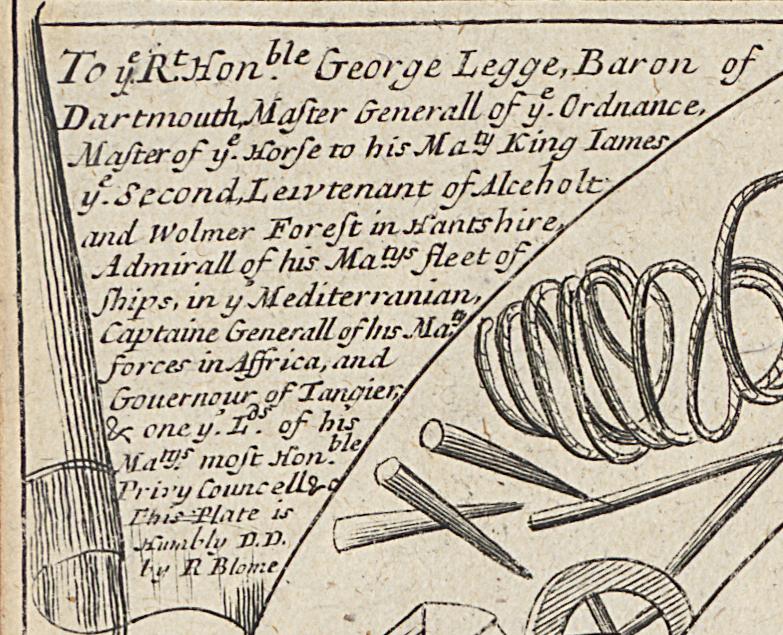 To yͤ Rͭ. Honᵇˡᵉ. George Legge, Baron of
Dartmouth, Maſter Generall of yͤ. Ordnance,
Maſter of yͤ. Horſe to his Maᵗʸ King Iames
yͤ. Second, Leivtenant of Alceholt
and Wolmer Foreſt in Hantshire,
Admirall of his Maᵗʸˢ fleet of
ſhips, in y Mediterranian,
Captaine Generall of his Maᵗʸ
forces in Affrica, and
Gouernour of Tangier,
& one y. Lᵈˢ. of his
Maᵗʸˢ moſt Honᵇˡᵉ.
Privy Councell &c
This Plate is
Humbly D.D.
by R Blome